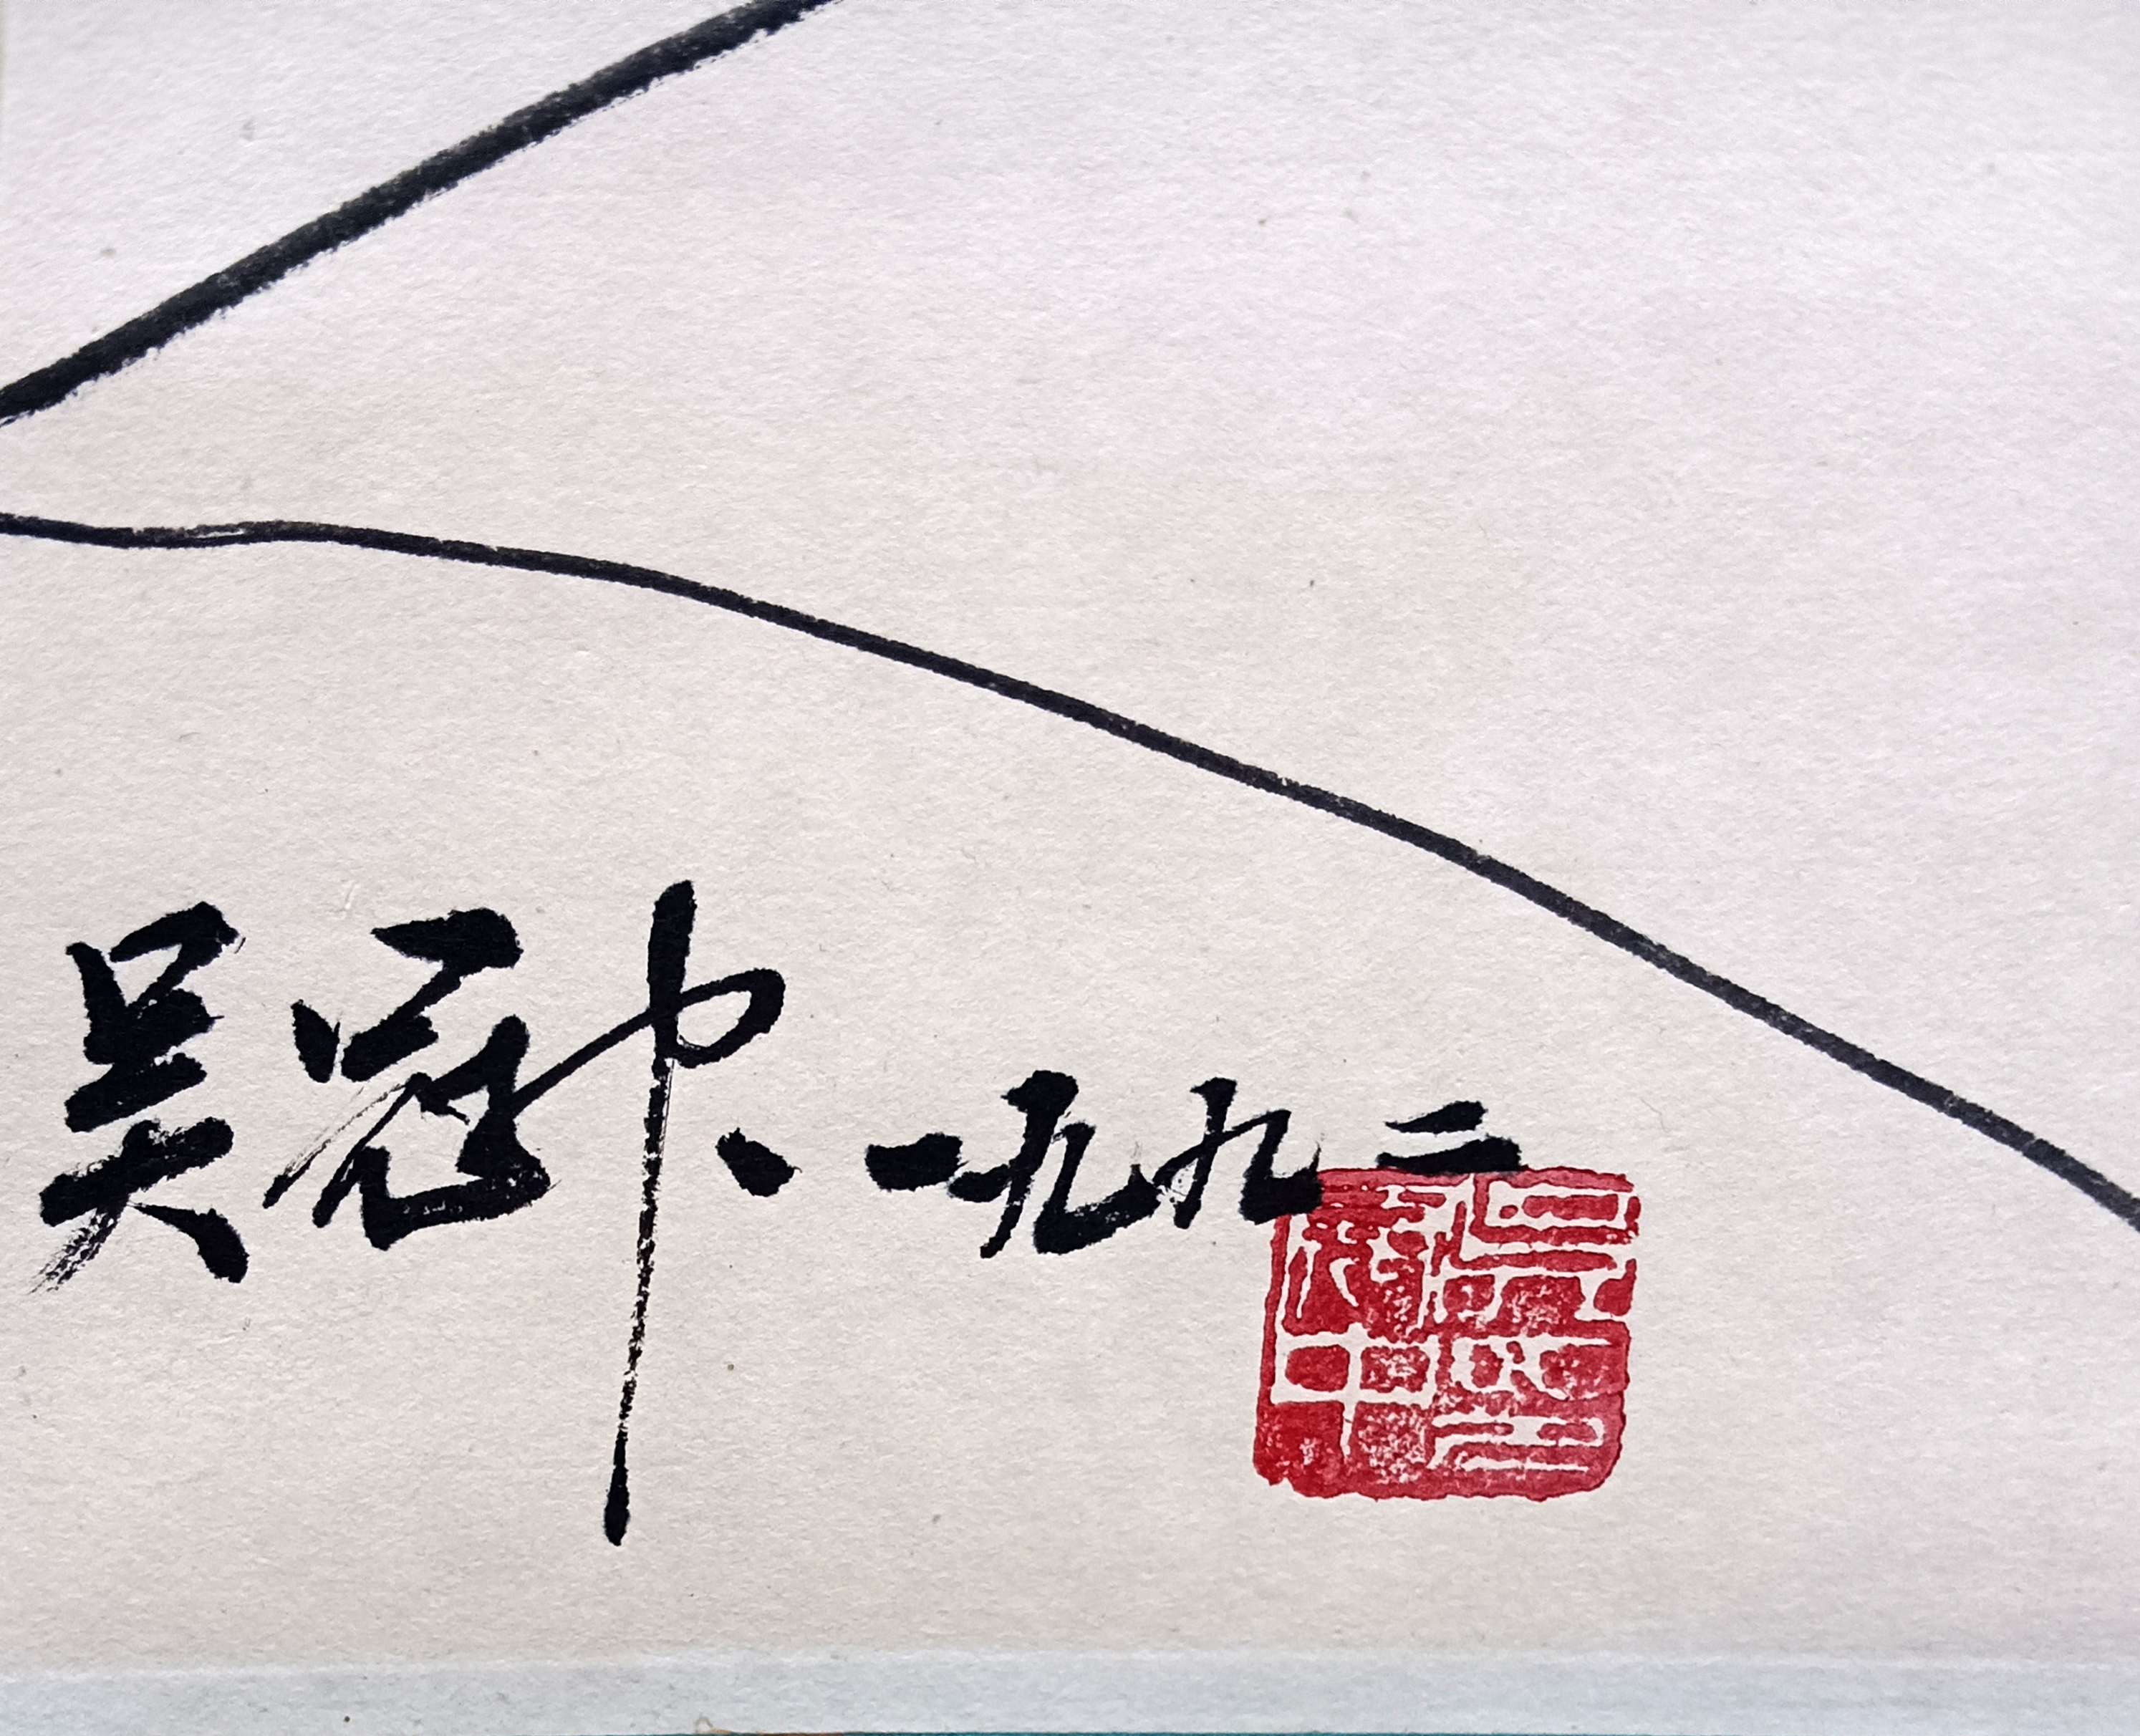 吴冠中、一九九二